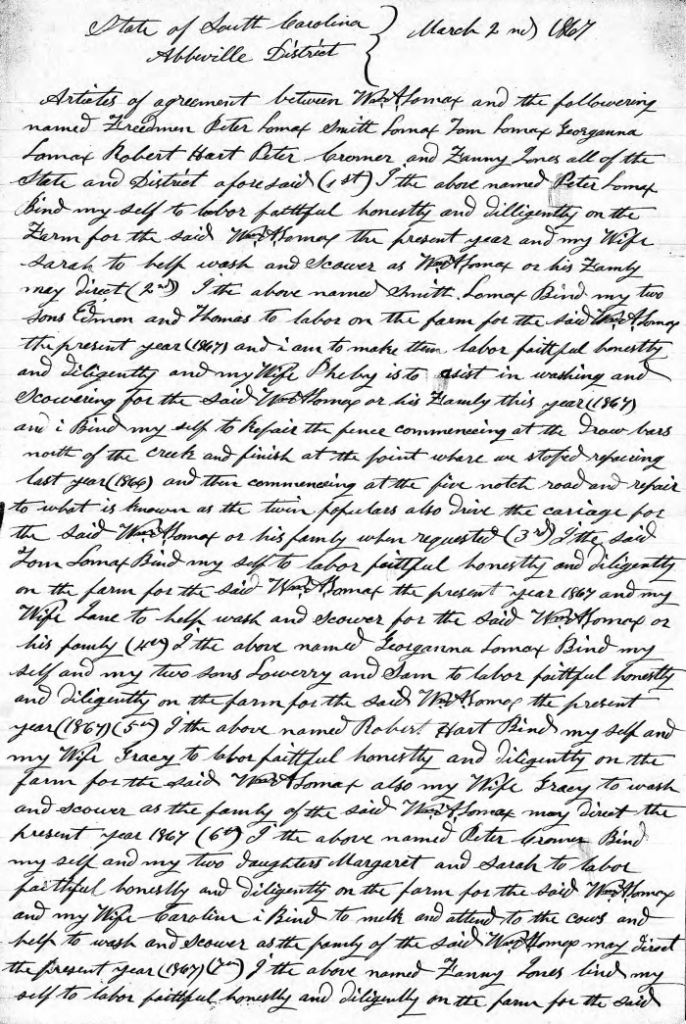 State of South Carolina } March 2nd 1867
Abbeville District
Articles of agreement between Wm A Lomax and the followering
named Freedmen Peter Lomax Smith Lomax Tom Lomax Georganna
Lomax Robert Hart Peter Cromer and Fanny Jones all of the
State and District afore said (1st) I the above named Peter Lomax
Bind my self to labor faithful honestly and dilligently on the
Farm for the said Wm A Lomax the present year and my Wife
Sarah to help wash and Scower as Wm A Lomax or his Family
may direct (2nd) I the above named Smith Lomax Bind my two
sons Edmon and Thomas to labor on the farm for the said Wm A Lomax
the present year (1867) and i am to make them labor faithful honestly
and diligently and my Wife Pheby is to asist in washing and
Scowering for the said Wm A Lomax or his Family this year (1867)
and i Bind my self to Repair the fence commencing at the Draw bars
north of the creek and finish at the point where we stoped repairing
last year (1866) and then commencing at the five notch road and repair
to what is known as the twin populars also drive the cariage for
the said Wm A Lomax or his family when requested (3rd) I the said
Tom Lomax Bind my self to labor faithful honestly and diligently
on the farm for the said Wm A Lomax the present year 1867 and my
Wife Jane to help wash and scower for the said Wm A Lomax or
his family (4th) I the above named Georganna Lomax Bind my
self and my two sons Lowerry and Sam to labor faithful honestly
and diligently on the farm for the said Wm A Lomax the present
year (1867) (5th) I the above named Robert Hart Bind my self and
my Wife Gracy to labor faithful honestly and diligently on the
farm for the said Wm A Lomax also my Wife Gracy to wash
and scower as the family of the said Wm A Lomax may direct the
present year 1867 (6th) I the above named Peter Cromer Bind
my self and my two daughters Margaret and Sarah to labor
faithful honestly and diligently on the farm for the said Wm A Lomax
and my Wife Caroline i Bind to milk and attend to the cows and
help to wash and scower as the family of the said Wm A Lomax may direct
the present year (1867) (7th) I the above named Fanny Jones bind my
self to labor faithful honestly and diligently on the farm for the said